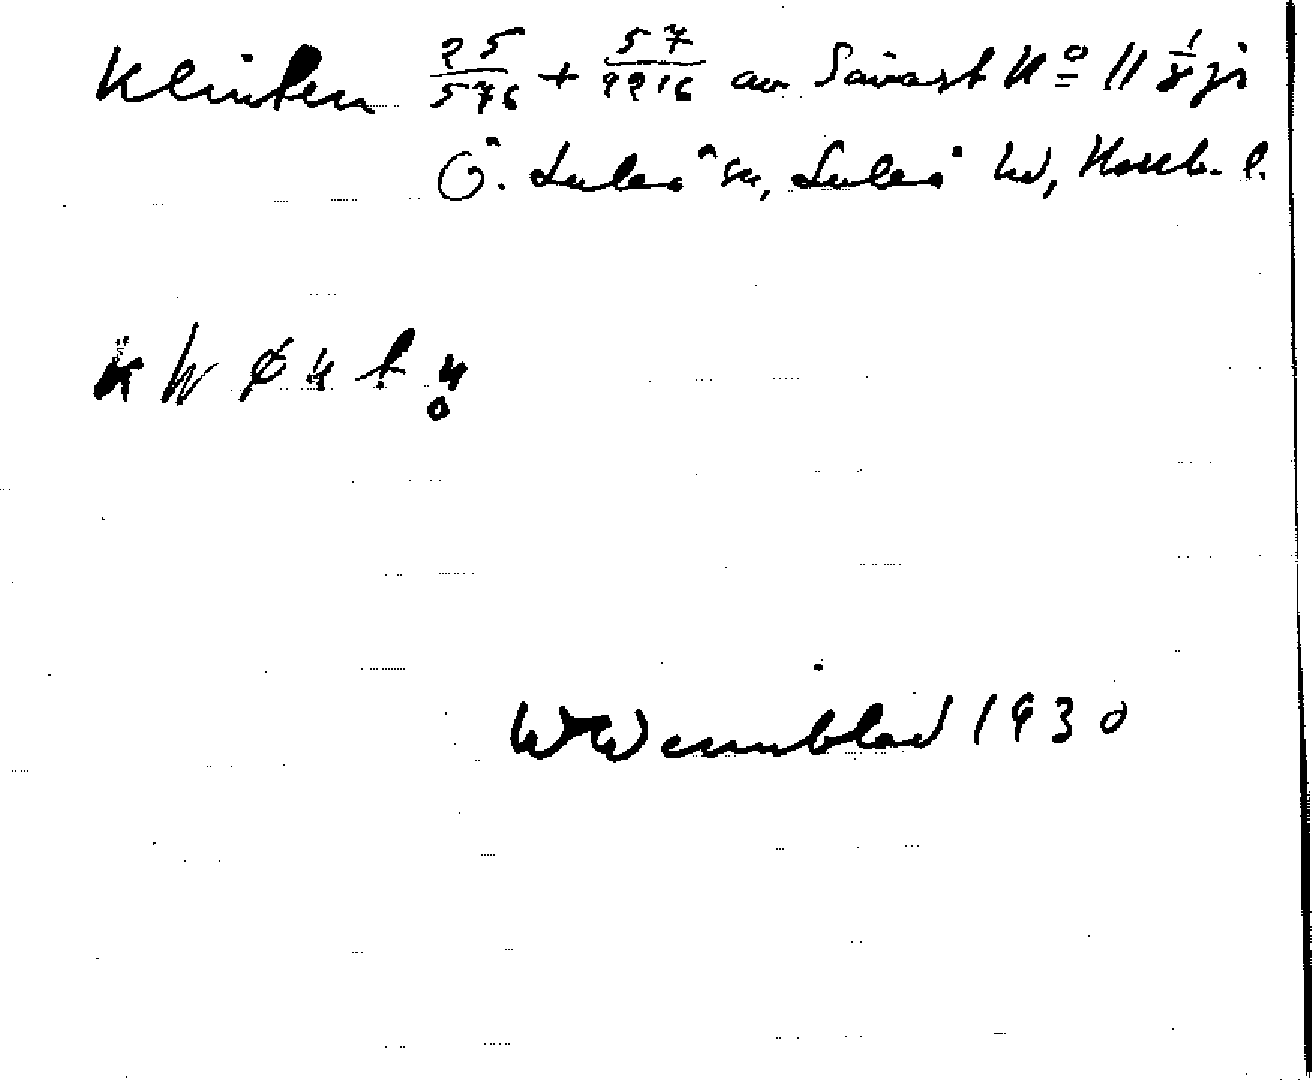 Klinten 25/576 + 57/9216 av Sävast No 11 1/8 ji
Ö. Luleå sn, Luleå ld, Norrb. l.
W Wennblad 1930